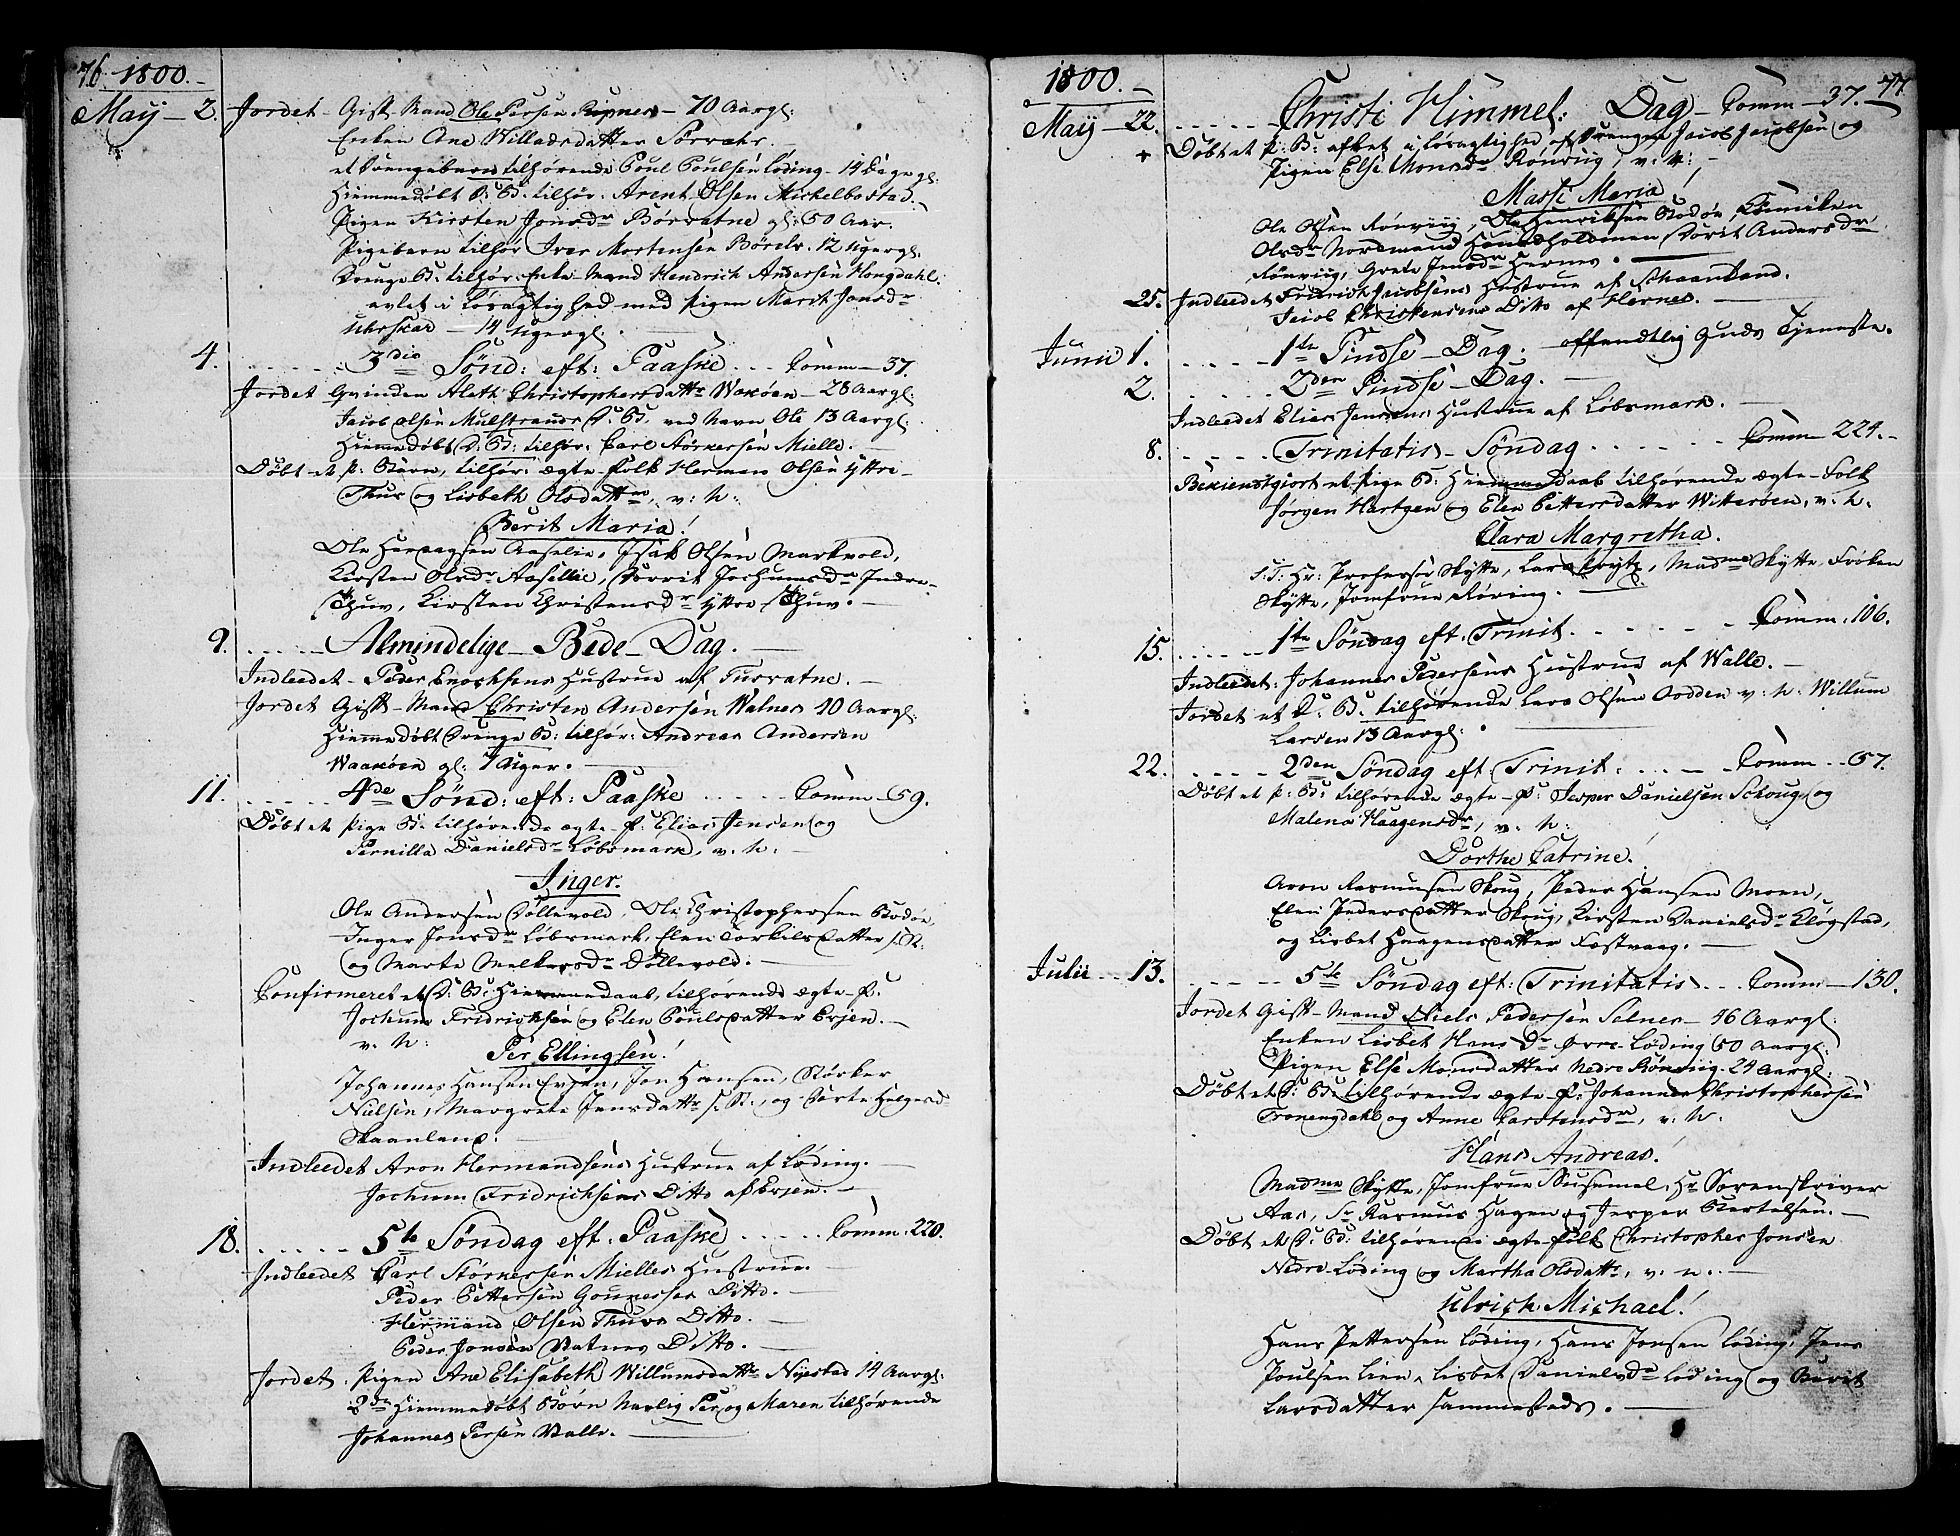 76. 1800.
May – 2. Jordet – Gift Mand Ole Persen – 70 Aargl:
Enken Ane Willadsdatter Sørvahr.
et Drengebarn tilhørende Poul Poulsen Løding – 14 Dage gl:
Hiemmedøbt D: B: tilhør: Arent Olsen Mickelbostad.
Pigen Kirsten Jonsdr Børvatne gl: 50 Aar.
Pigebarn tilhør Iver Mortensen Børelv. 12 ugergl.
Drenge B: tilhør: Enke Mand Hendrich Andersen Hongdahl:
avlet i Løsagtighed med pigen Marit Jonsdr
Uhrskar – 14 ugergl.
4. 3die Sønd: eft: Paaske Comm – 37.
Jordet Qvinden Aleth Christophersdattr Waxøen – 28 Aargl:
Jacob Olsen Mulstrands D: B: ved Navn Ole 13 Aargl:
Hiemmedøbt D: B: tilhør: Carl Størkersen Mielle.
Døbt et p: Barn, tilhør: ægte-Folk Herman Olsen Yttre-
Thuv og Lisbeth Olsdattr, v: h:
Berit Maria!
Ole Hersagsen Aaselie, Isak Olsen Markvold,
Kirsten Olsdr Aasellie, Dorrit Jochumsdr Indre-
Thuv, Kirsten Christensdr Yttre Thuv. –
9. Almindelige – Bede – Dag. –
Indleedet – Peder Enochsens Hustrue af Tusvatne. –
Jordet Gift – Mand Christen Andersen Walnes 40 Aargl:
Hiemmedøbt Drenge B: tilhør: Andreas Andersen
Waaxøen gl: 7 Uger. –
11. 4de Sønd: eft: Paaske Comm – 59.
Døbt et pige B: tilhørende ægte-F: Elias Jensen og
Pernilla Danielsdr Løbsmark, v. h: –
Inger.
Ole Andersen Döllevold, Ole Christophersen Bodøe,
Inger Jonsdr Løbsmark, Elen Torkilsdatter s: St:
og Marte Melkersdr Döllevold. –
Confirmeret et D: B: Hiemmedaab, tilhørende ægte-F:
Jochum Fridrichsen og Elen Poulsdatter Evjen. –
v. h:
Per Ellingsen!
Johannes Hansen Evjen, Jon Hansen, Størker
Nielsen, Margrete Jensdattr s. St:, og Dorte Helgesd.
Skaanland.
Indleedet Aron Hermandsens Hustrue af Løding. –
Jochum Fridrichsens Ditto af Evjen. –
18. 5te Søndag eft: Paaske Comm: 220.
Indleedet Carl Størkersen Mielles Hustrue.
Peder Pettersen Ditto. –
Hermand Olsen Thuvs Ditto. –
Peder Jonsen Vatnes Ditto. –
Jordet. Pigen Ane Elisabeth Willumsdattr Nystad 14 Aargl:
2de Hiemmedøbt Børn Navlig Per og Maren tilhørende
Johannes Persen Valle. –
1800. – 77.
May – 22. Christi Himmel: Dag – Comm – 37.
+ Døbt et p: B: aflet i Løsagtighed af Drengen Jacob Jacobsen og
Pigen Else Monsdr Rönviig, v: h:, –
Massi Maria!
Ole Olsen Rönviig, Ole Henriksen Bodøe,
Olsdr Nordmand Hundholdmen, Dorit Andersdr
Rönviig, Grete Jensdr Hernes. –
25. Indleedet Fridrich Jacobsens Hustrue af Skaanland.
Jacob Christensens Ditto af Hernes. –
Junii 1. 1te Pindse – Dag. offendtlig Guds Tjeneste.
2. 2den Pindse – Dag. –
Indleedet Elias Jensens Hustrue af Løbsmark. –
8. Trinitatis – Søndag Comm 224. –
Bekiendtgiort et pige B: Hiemmedaab tilhørende ægte-Folk
Jørgen Hartgen og Elen Pettersdatter Witterøen, v. h.
Clara Margretha.
S: T: Hr: Professor Skytte, Lars, Madme Skytte, Frøken
Skytte, Jomfrue Röring. –
15. 1te Søndag eft: Trinit. Comm: 106.
Indleedet: Johannes Pedersens Hustrue af Walle. –
Jordet et D: B: tilhørende Lars Olsen Aodden v: N: Willum
Larsen 13 Aargl: –
22. 2den Søndag eft: Trinit: Comm – 57.
Døbt et p: B: tilhørende ægte-F: Jesper Danielsen Schoug og
Malena Haagensdr, v: h:
Dorthe Catrine!
Aron Rasmusen Skoug, Peder Hansen Moen,
Elen Pedersdatter Skoug, Kirsten Danielsdr Kløgstad,
og Lisbet Haagensdatter Fastvaag. –
Julii – 13. 5te Søndag eft: Trinitatis Comm – 130.
Jordet Gift – Mand Niels Pedersen Selnes – 46 Aargl:
Enken Lisbet Hansdr Øvre-Løding 50 Aargl:
Pigen Else Monsdatter Nedre Rönviig. 24 Aargl:
Døbt et D: B: tilhørende ægte-F: Johannes Christophersen
Tronengdahl og Anne Carstensdr, v: h.
Hans Andreas!
Madme Skytte, Jomfrue, Hr Sorenskriver
Aas, Sr Rasmus Hagen og Jesper Bertelsen. –
Døbt et D: B: tilhørende ægte-Folk Christopher Jonsen
Nedre-Løding og Martha Olsdattr, v: h. –
Ulrich Michael!
Hans Pettersen Løding, Hans Jonsen Løding, Jens
Poulsen Lien, Lisbet Danielsdr Løding og Berit
Larsdatter sammesteds. –